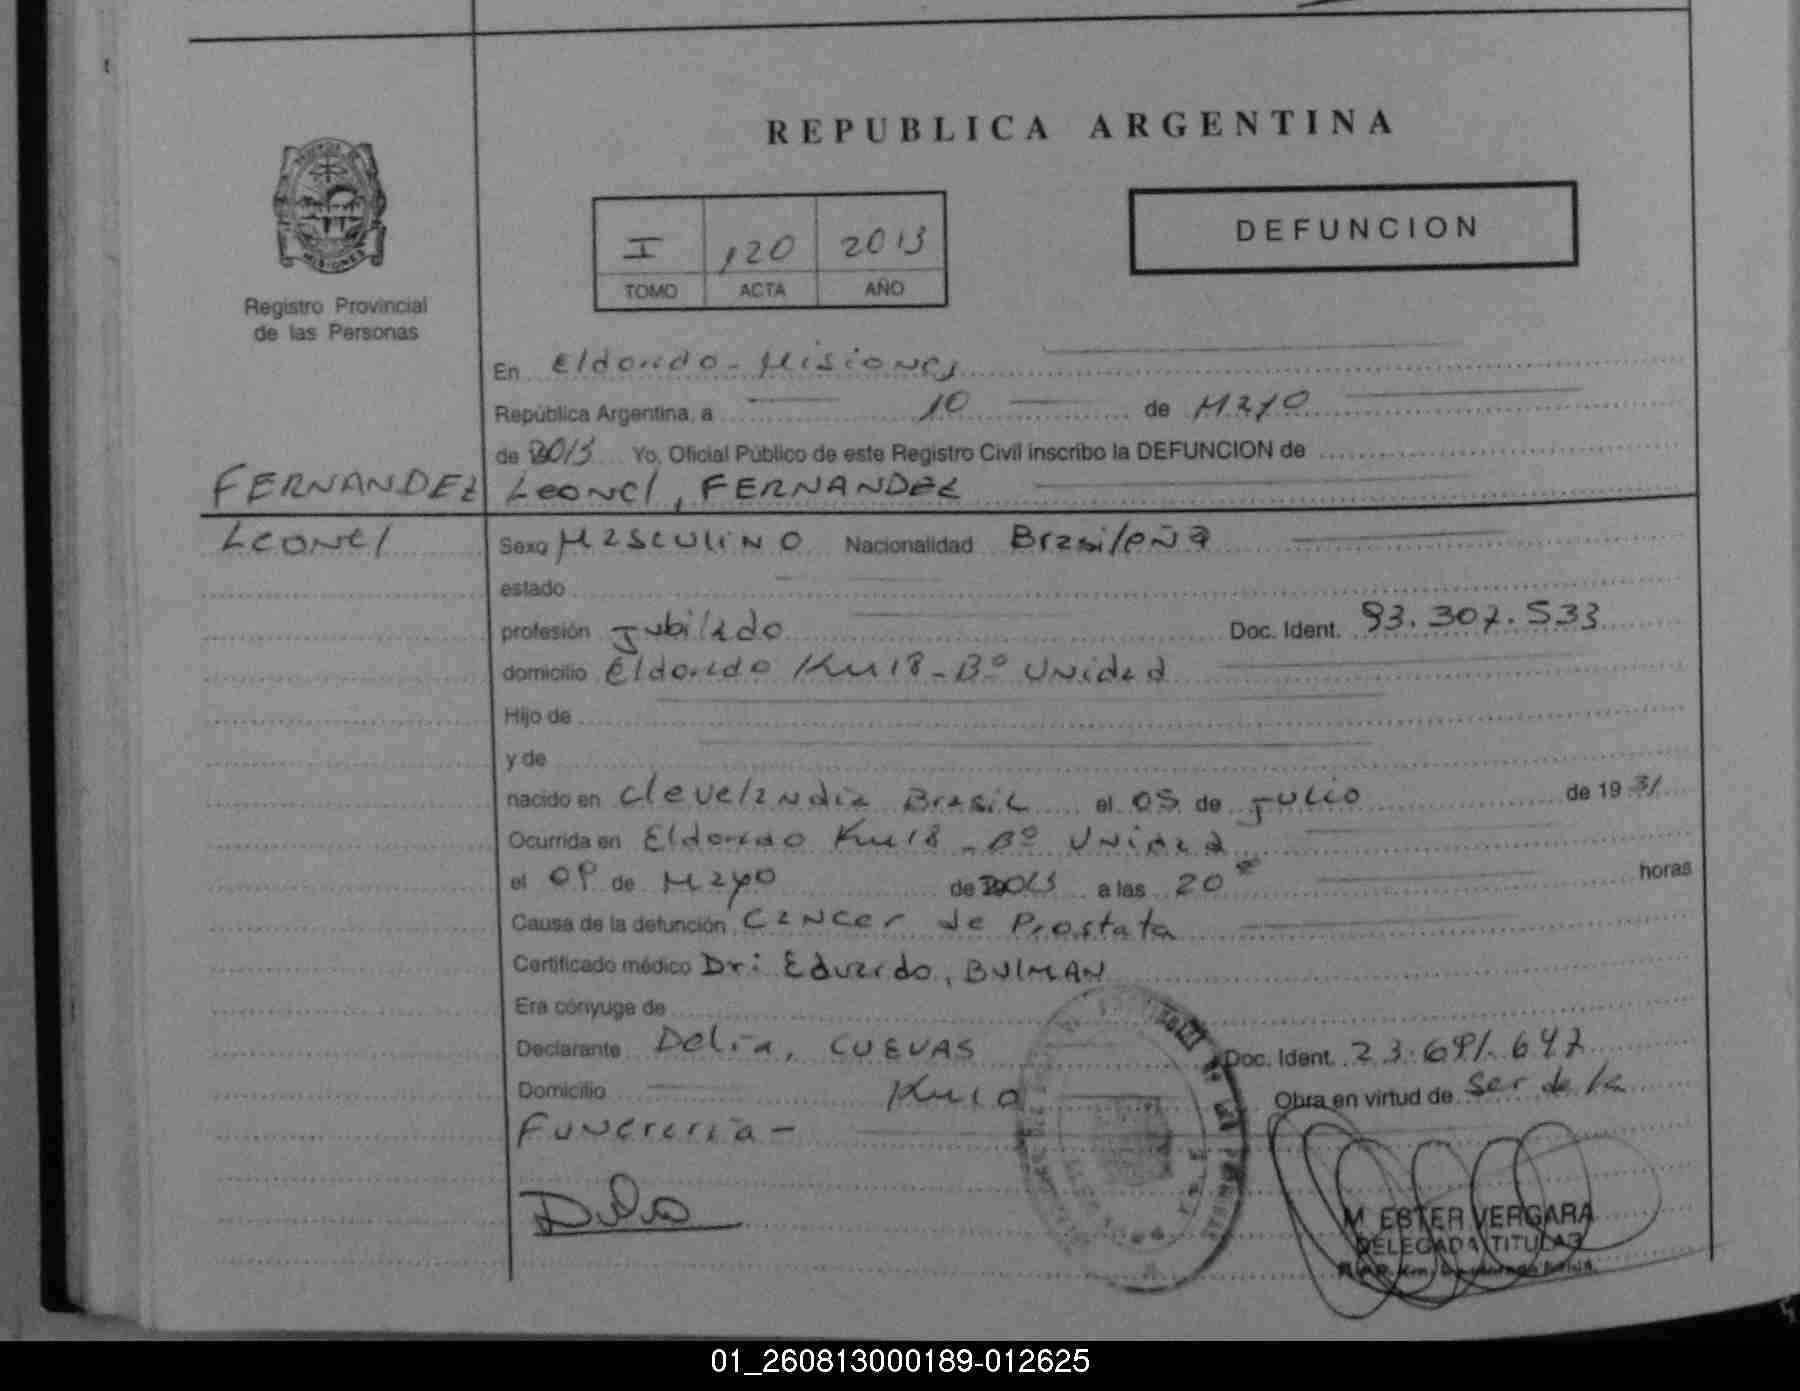 REPUBLICA ARGENTINA
DEFUNCION
I 120 2013
TOMO ACTA AÑO
Registro Provincial
de las Personas
En Eldorado - Misiones
República Argentina, a 10 de Mayo
de 2013 Yo, Oficial Público de este Registro Civil inscribo la DEFUNCION de
FERNANDEZ Leonel, FERNANDEZ
Leonel
Sexo Masculino Nacionalidad Brasileña
estado
profesión Jubilado Doc. Ident. 93.307.533
domicilio Eldorado Km 18 - Bº Unidad
Hijo de
y de
nacido en Clevelandia Brasil el 05 de Julio de 1931
Ocurrida en Eldorado Km 18 - Bº Unidad
el 09 de Mayo de 2013 a las 20 horas
Causa de la defunción Cancer de Prostata
Certificado médico Dr: Eduardo, BULMAN
Era cónyuge de
Declarante Delia, CUEVAS Doc. Ident. 23.691.647
Domicilio Km 10 Obra en virtud de Ser de la
Funeraria -
M. ESTER VERGARA
DELEGADA TITULAR
01_260813000189-012625